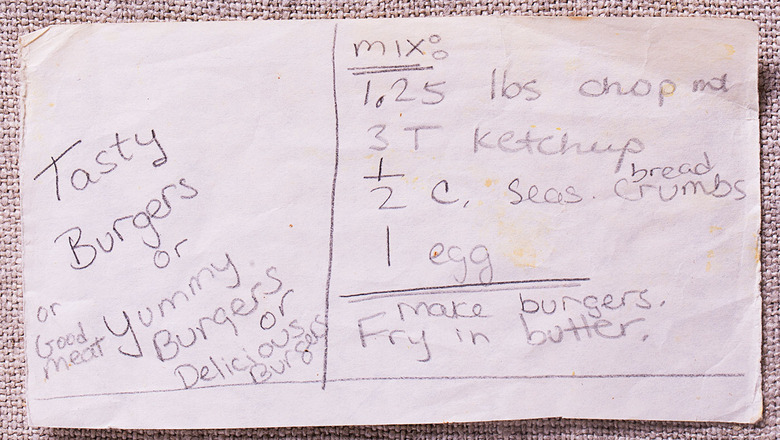 Tasty
Burgers
or
Yummy
Burgers
or
Delicious
Burgers
or
Good
meat
mix:
1.25 lbs chop
3 T Ketchup
1/2 c. seas. bread crumbs
1 egg
make burgers.
Fry in butter.